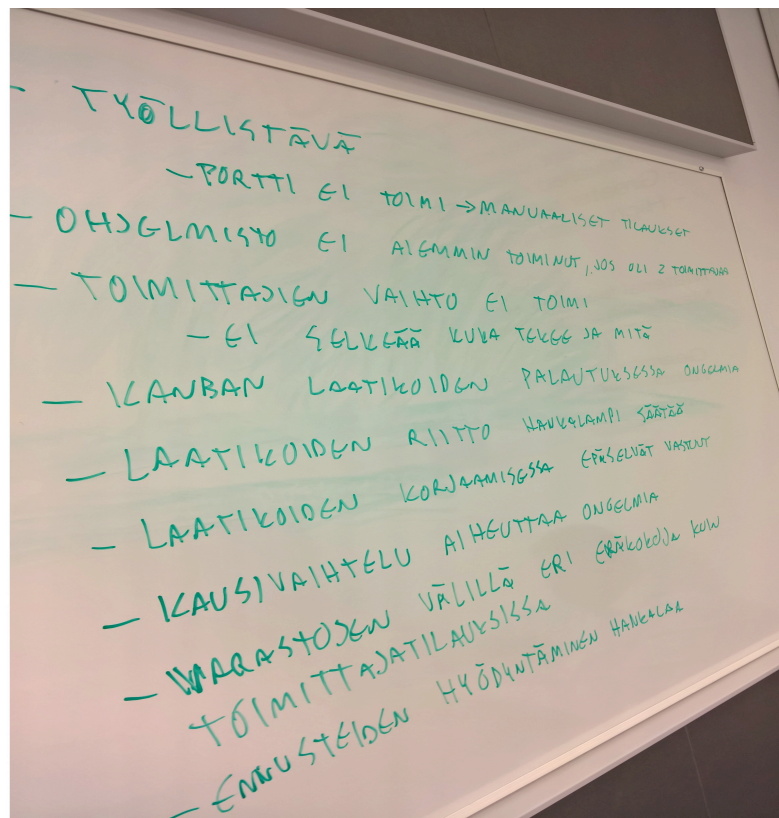 - TYÖLLISTÄVÄ
- PORTTI EI TOIMI → MANUAALISET TILAUKSET
- OHJELMISTO EI AIEMMIN TOIMINUT, JOS OLI 2 TOIMITTAJAA
- TOIMITTAJIEN VAIHTO EI TOIMI
- EI SELKEÄÄ KUKA TEKEE JA MITÄ
- KANBAN LAATIKOIDEN PALAUTUKSESSA ONGELMIA
- LAATIKOIDEN RIITTO HANKALAMPI SÄÄTÄÄ
- LAATIKOIDEN KORJAAMISESSA EPÄSELVÄT VASTUUT
- KAUSIVAIHTELU AIHEUTTAA ONGELMIA
- VARASTOJEN VÄLILLÄ ERI ERÄKOKOJA KUIN
TOIMITTAJATILAUKSISSA
- ENNUSTEIDEN HYÖDYNTÄMINEN HANKALAA